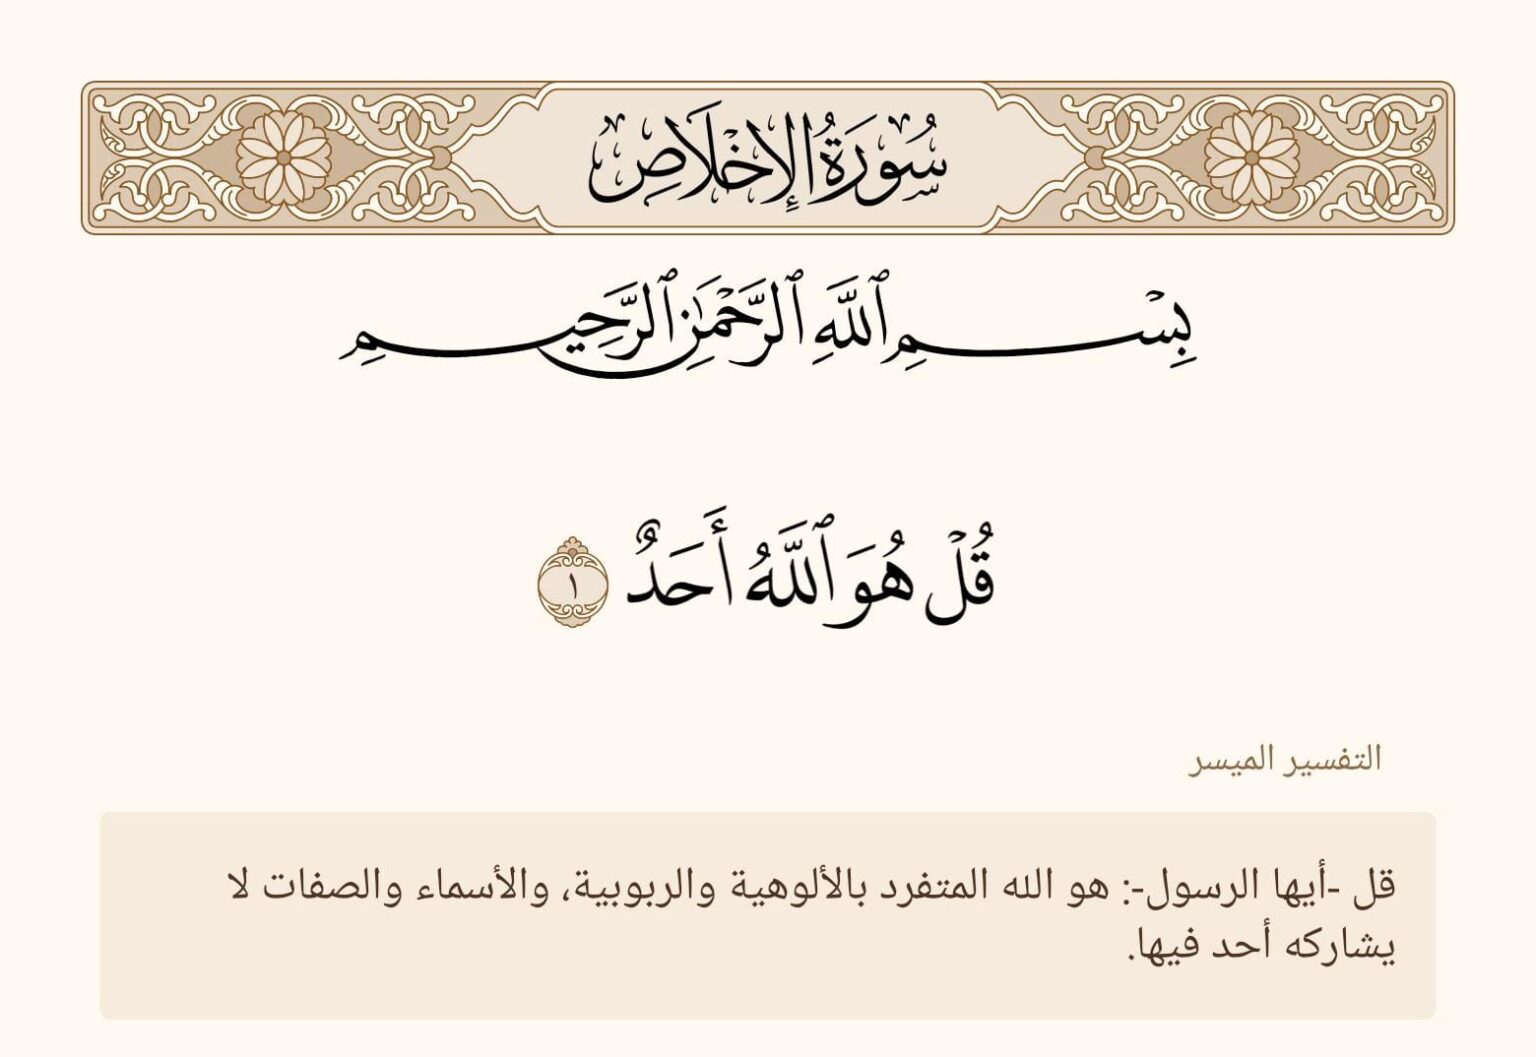 سُورَةُ الإِخْلَاصِ
بِسْمِ ٱللَّهِ ٱلرَّحْمَٰنِ ٱلرَّحِيمِ
قُلْ هُوَ ٱللَّهُ أَحَدٌ ١
التفسير الميسر
قل -أيها الرسول-: هو الله المتفرد بالألوهية والربوبية، والأسماء والصفات لا
يشاركه أحد فيها.